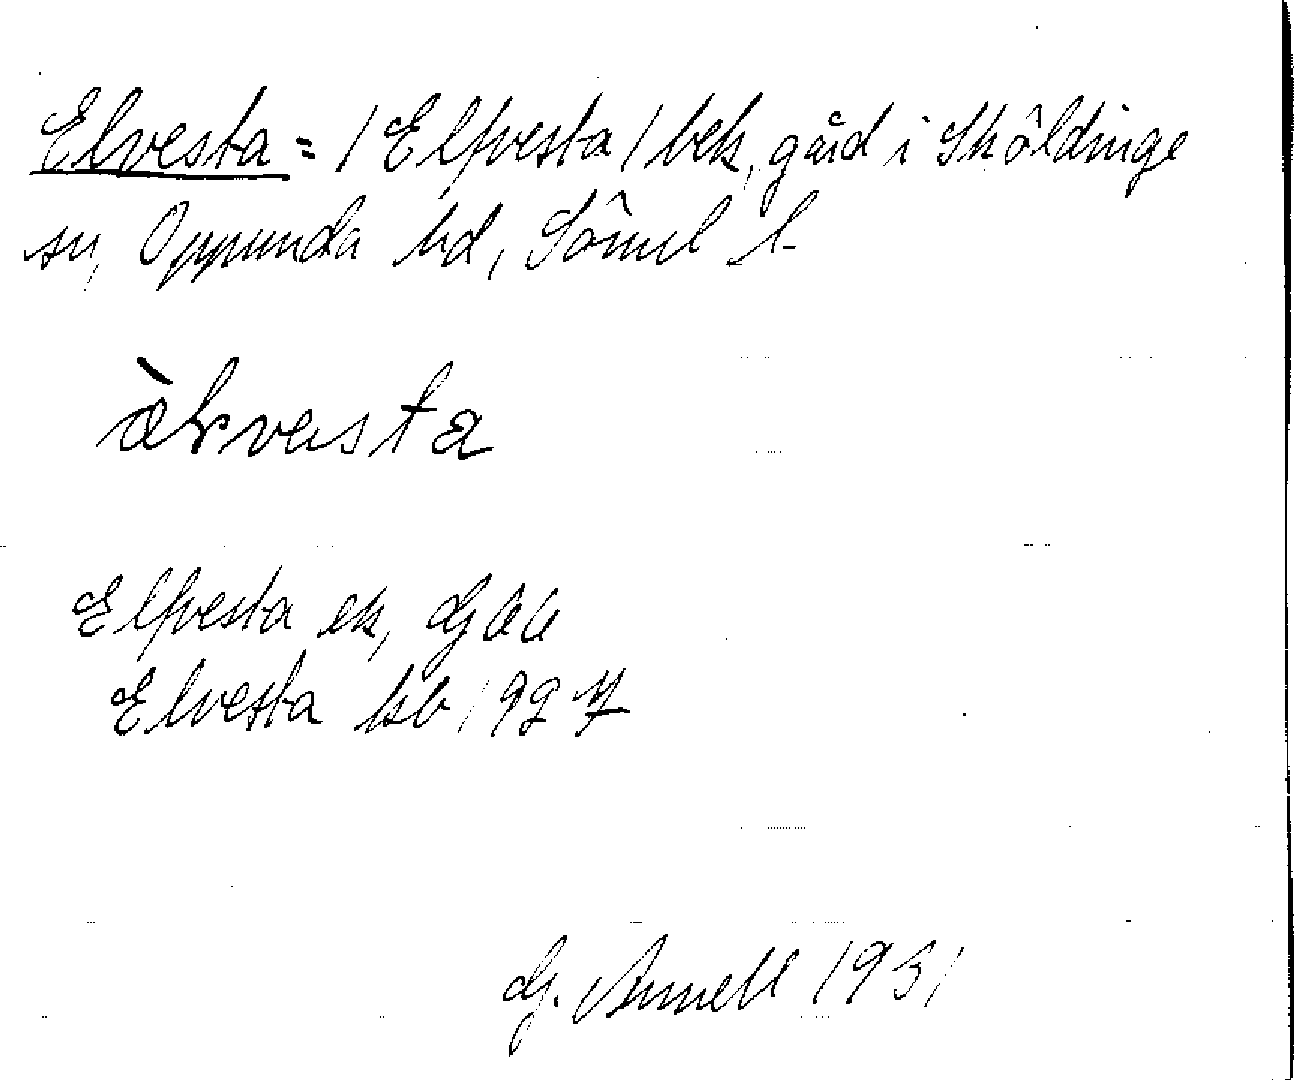 Elvesta = / Elfvesta / bek, gård i Sköldinge
sn, Oppunda hd, Söml l.
Elfvesta ek, GEK
Elvesta kb 1927
G. Annell 1931